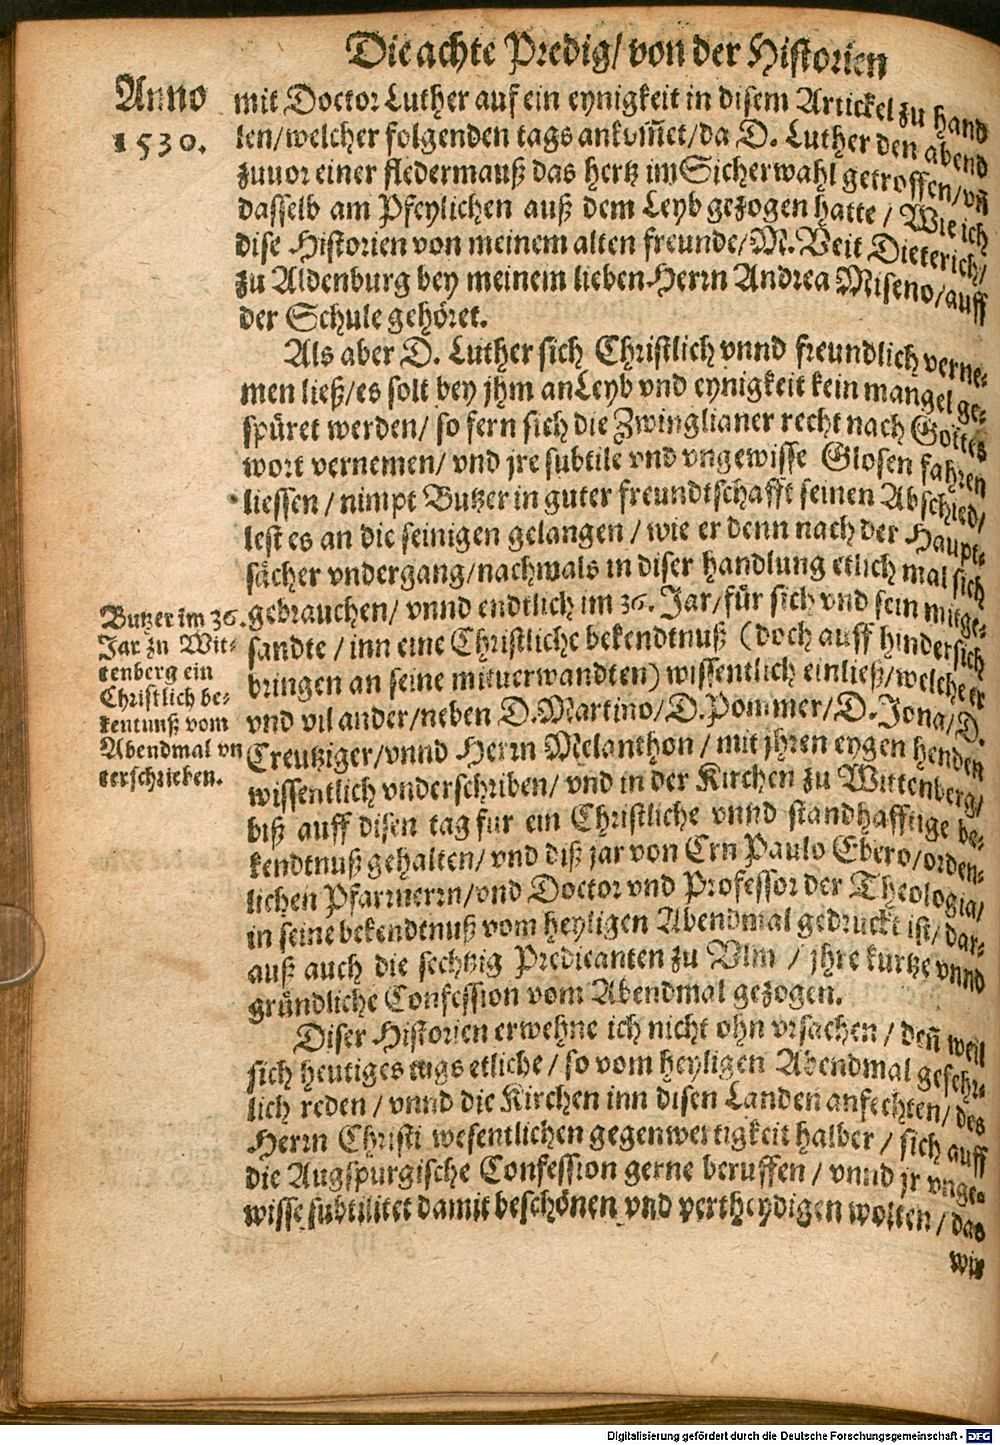 Die achte Predig/ von der Historien
Anno
1530.
mit Doctor Luther auf ein eynigkeit in disem Artickel zu hand
len/welcher folgenden tags ankom̃et/da D. Luther den abend
zuuor einer fledermauß das hertz im Sicherwahl getroffen/vñ
dasselb am Pfeylichen auß dem Leyb gezogen hatte / Wie ich
dise Historien von meinem alten freunde/M. Veit Dieterich/
zu Aldenburg bey meinem lieben Herrn Andrea Miseno/auff
der Schule gehöret.
Als aber D. Luther sich Christlich vnnd freundlich verne-
men ließ/es solt bey jhm an Leyb vnd eynigkeit kein mangel ge-
spüret werden/ so fern sich die Zwinglianer recht nach Gottes
wort vernemen/ vnd jre subtile vnd vngewisse Glosen fahren
liessen / nimpt Butzer in guter freundtschafft seinen Abschied/
lest es an die seinigen gelangen / wie er denn nach der Haupt-
sächer vndergang/nachmals in diser handlung etlich mal sich
gebrauchen/ vnnd endtlich im 36. Jar/für sich vnd sein mitge-
sandte / inn eine Christliche bekendtnuß (doch auff hindersich
bringen an seine mituerwandten) wissentlich einließ/welche er
vnd vil ander/neben D. Martino/D. Pommer/D. Jona/D.
Creutziger/vnnd Herrn Melanthon / mit jhren eygen henden
wissentlich vnderschriben/ vnd in der Kirchen zu Wittenberg/
biß auff disen tag für ein Christliche vnnd standhafftige be-
kendtnuß gehalten/ vnd diß jar von Ern Paulo Ebero/orden-
lichen Pfarrherrn/vnd Doctor vnd Professor der Theologia/
in seine bekendtnuß vom heyligen Abendmal gedruckt ist/ dar-
auß auch die sechtzig Predicanten zu Vlm / jhre kurtze vnnd
gründliche Confession vom Abendmal gezogen.
Butzer im 36.
Jar zu Wit-
tenberg ein
Christlich be-
kentnuß vom
Abendmal vn
terschrieben.
Diser Historien erwehne ich nicht ohn vrsachen / deñ weil
sich heutiges tags etliche / so vom heyligen Abendmal gefehr-
lich reden / vnnd die Kirchen inn disen Landen anfechten/ des
Herrn Christi wesentlichen gegenwertigkeit halber / sich auff
die Augspurgische Confession gerne beruffen / vnnd jr vnge-
wisse subtilitet damit beschönen vnd vertheydigen wolten / das
wir
Digitalisierung gefördert durch die Deutsche Forschungsgemeinschaft - DFG